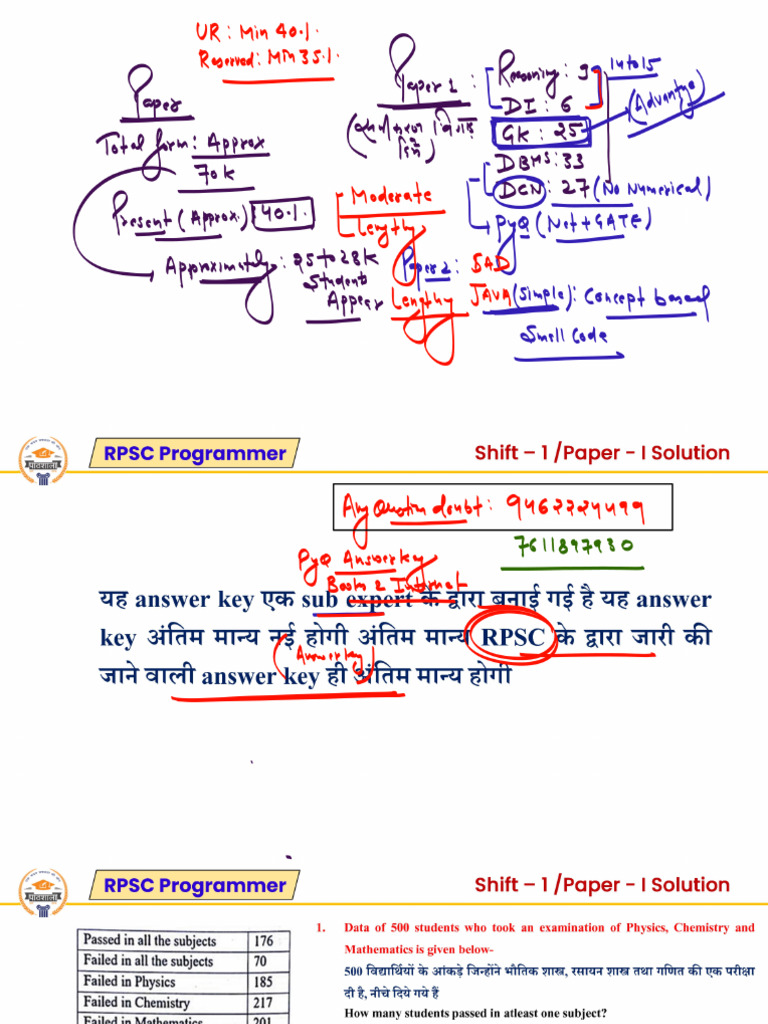 UR: Min 40%
Reserved: Min 35%
Paper
Total form: Approx
70k
Present (Approx.) 40%
Approximately: 25 to 28k
Student
Appear
Paper 1:
Reasoning: 9
DI: 6
14 to 15
GK: 25
(Advantage)
DBMS: 33
DCN: 27 (No Numerical)
PyQ (Net + GATE)
Moderate
Lengthy
Paper 2: SAD
Lengthy JAVA (Simple): Concept based
Small Code
RPSC Programmer
Shift – 1 /Paper - I Solution
Any Question doubt: 9462224499
7611897930
PyQ Answer key
Books 2 Internet
यह answer key एक sub expert के द्वारा बनाई गई है यह answer
key अंतिम मान्य नई होगी अंतिम मान्य RPSC के द्वारा जारी की
(Answer key)
जाने वाली answer key ही अंतिम मान्य होगी
RPSC Programmer
Shift – 1 /Paper - I Solution
Passed in all the subjects 176
Failed in all the subjects 70
Failed in Physics 185
Failed in Chemistry 217
Failed in Mathematics 201
1. Data of 500 students who took an examination of Physics, Chemistry and
Mathematics is given below-
500 विद्यार्थियों के आंकड़े जिन्होंने भौतिक शास्त्र, रसायन शास्त्र तथा गणित की एक परीक्षा
दी है, नीचे दिये गये हैं
How many students passed in atleast one subject?